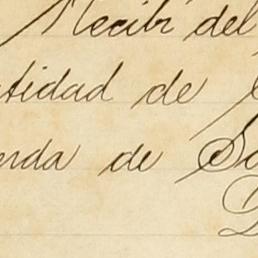 Recibí del
tidad de
enda de S